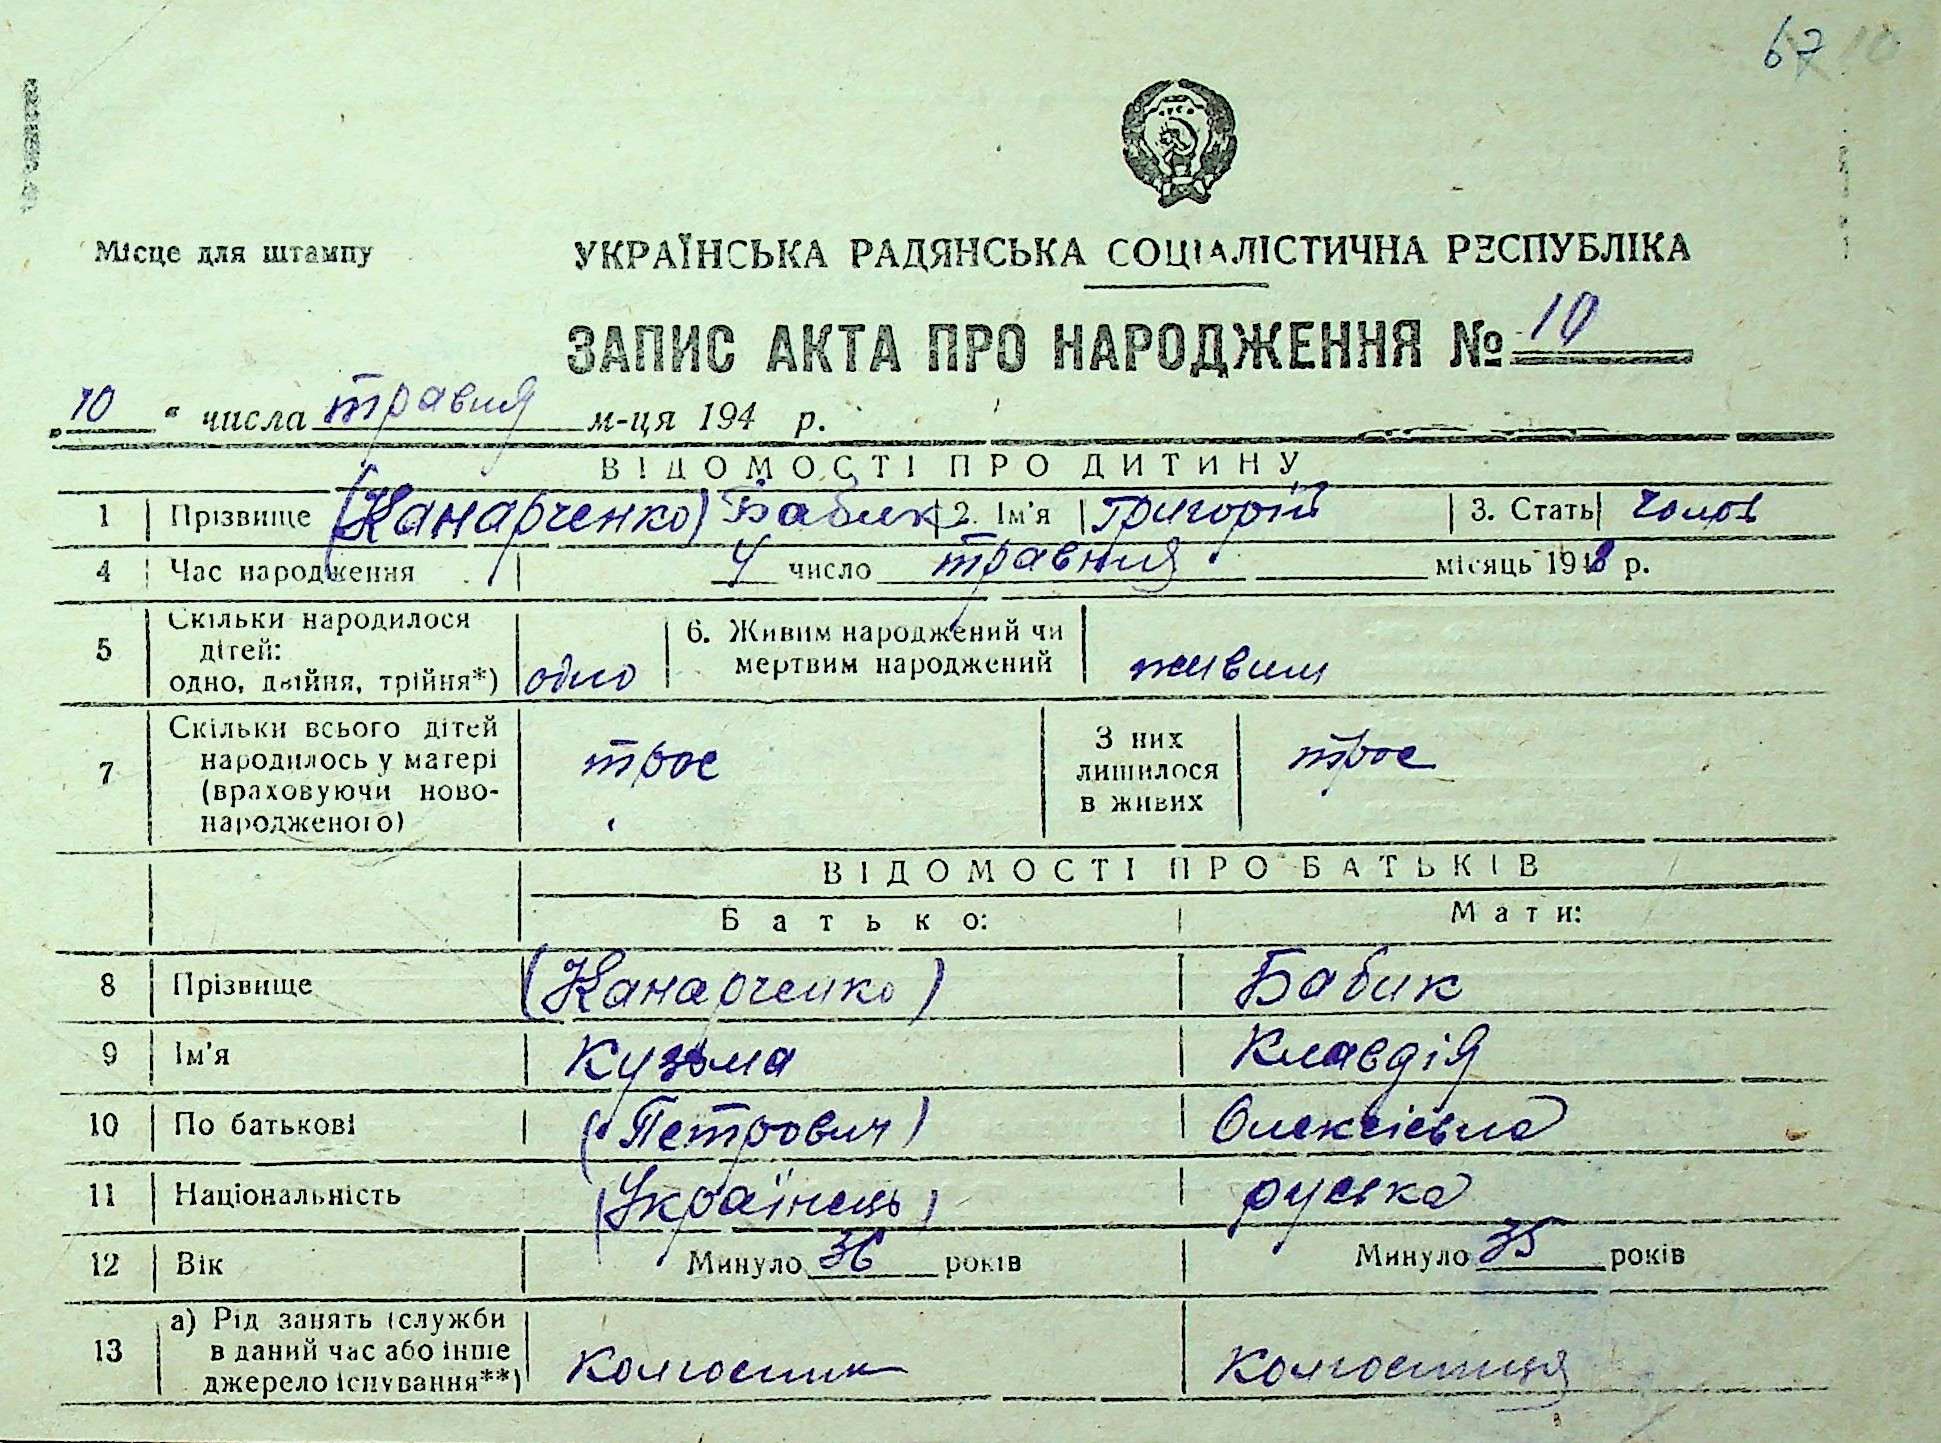 67 10
Місце для штампу
УКРАЇНСЬКА РАДЯНСЬКА СОЦІАЛІСТИЧНА РЕСПУБЛІКА
ЗАПИС АКТА ПРО НАРОДЖЕННЯ № 10
„10“ числа травня м-ця 194 р.
ВІДОМОСТІ ПРО ДИТИНУ
1 Прізвище (Канарченко) Бабик 2. Ім'я Григорій 3. Стать чолов
4 Час народження 4 число травня місяць 1948 р.
5 Скільки народилося дітей: одно, двійня, трійня*) одно 6. Живим народжений чи мертвим народжений живим
7 Скільки всього дітей народилось у матері (враховуючи новонародженого) троє З них лишилося в живих троє
ВІДОМОСТІ ПРО БАТЬКІВ
Батько: Мати:
8 Прізвище (Канарченко) Бабик
9 Ім'я Кузьма Клавдія
10 По батькові (Петрович) Олексіївна
11 Національність (Українець) руська
12 Вік Минуло 36 років Минуло 35 років
13 а) Рід занять (служби в даний час або інше джерело існування**) Колгоспник Колгоспниця